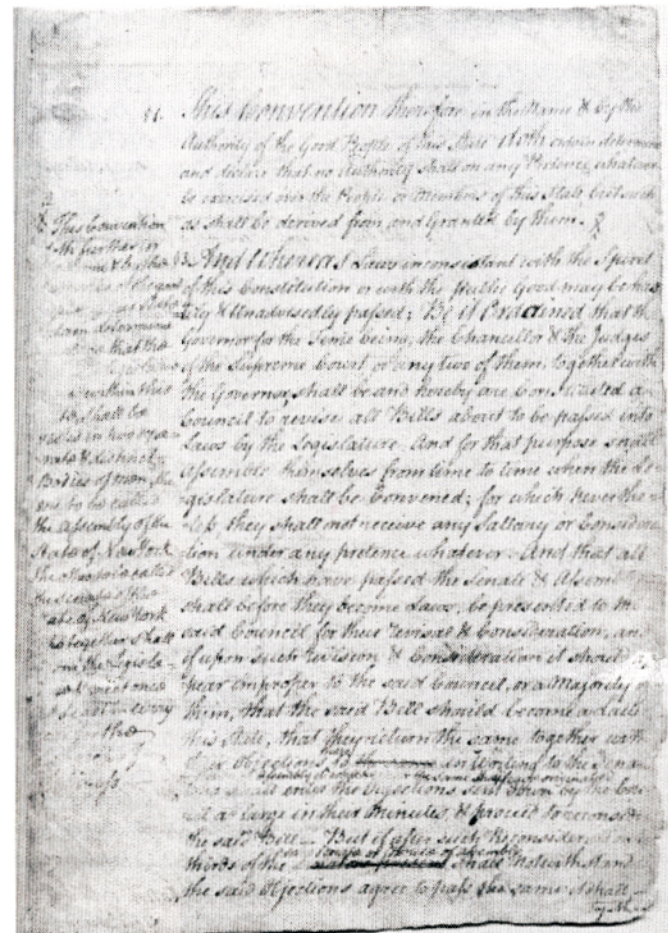 This Convention therefore in the Name & by the
Authority of the Good People of this State Doth ordain determine
and declare that no Authority shall on any Pretence whatever
be exercised over the People or Members of this State but such
as shall be derived from and Granted by them.
And Whereas Laws inconsistant with the Spirit
of this Constitution or with the public Good may be has
tily & Unadvisedly passed; Be it Ordained that the
Governor for the Time being, the Chancellor & the Judges
of the Supreme Court or any two of them, together with
the Governor, shall be and hereby are Constituted a
Council to revise all Bills about to be passed into
Laws by the Legislature. And for that purpose shall
assemble themselves from time to time when the Le-
gislature shall be Convened; for which never the-
less, they shall not receive any Sallary or Considera
tion under any pretence whatever. And that all
Bills which have passed the Senate & Assem
shall before they become Laws, be presented to the
said Council for their revisal & Consideration, an
if upon such Revision & Consideration it should
pear improper to the said Council, or a Majority
them, that the said Bill should become a Law
this State, that they return the same together with
their Objections in Writing to the Sena
or the same shall have originated
enter the Objections sent down by the Cou
at large in their Minutes, & proceed to reconsi
the said Bill. But if after such Reconsider
Senate or House of Assembly
thirds of the shall Notwithstand
the said Objections agree to pass the same it shall
This Convention
further in
determine
that the
within this
shall be
in two sepa
rate & distinct
Bodies of men, the
one to be called
the Assembly of the
State of New York
the other to be called
the Senate of the
State of New York
together shall
the Legisla-
meet once